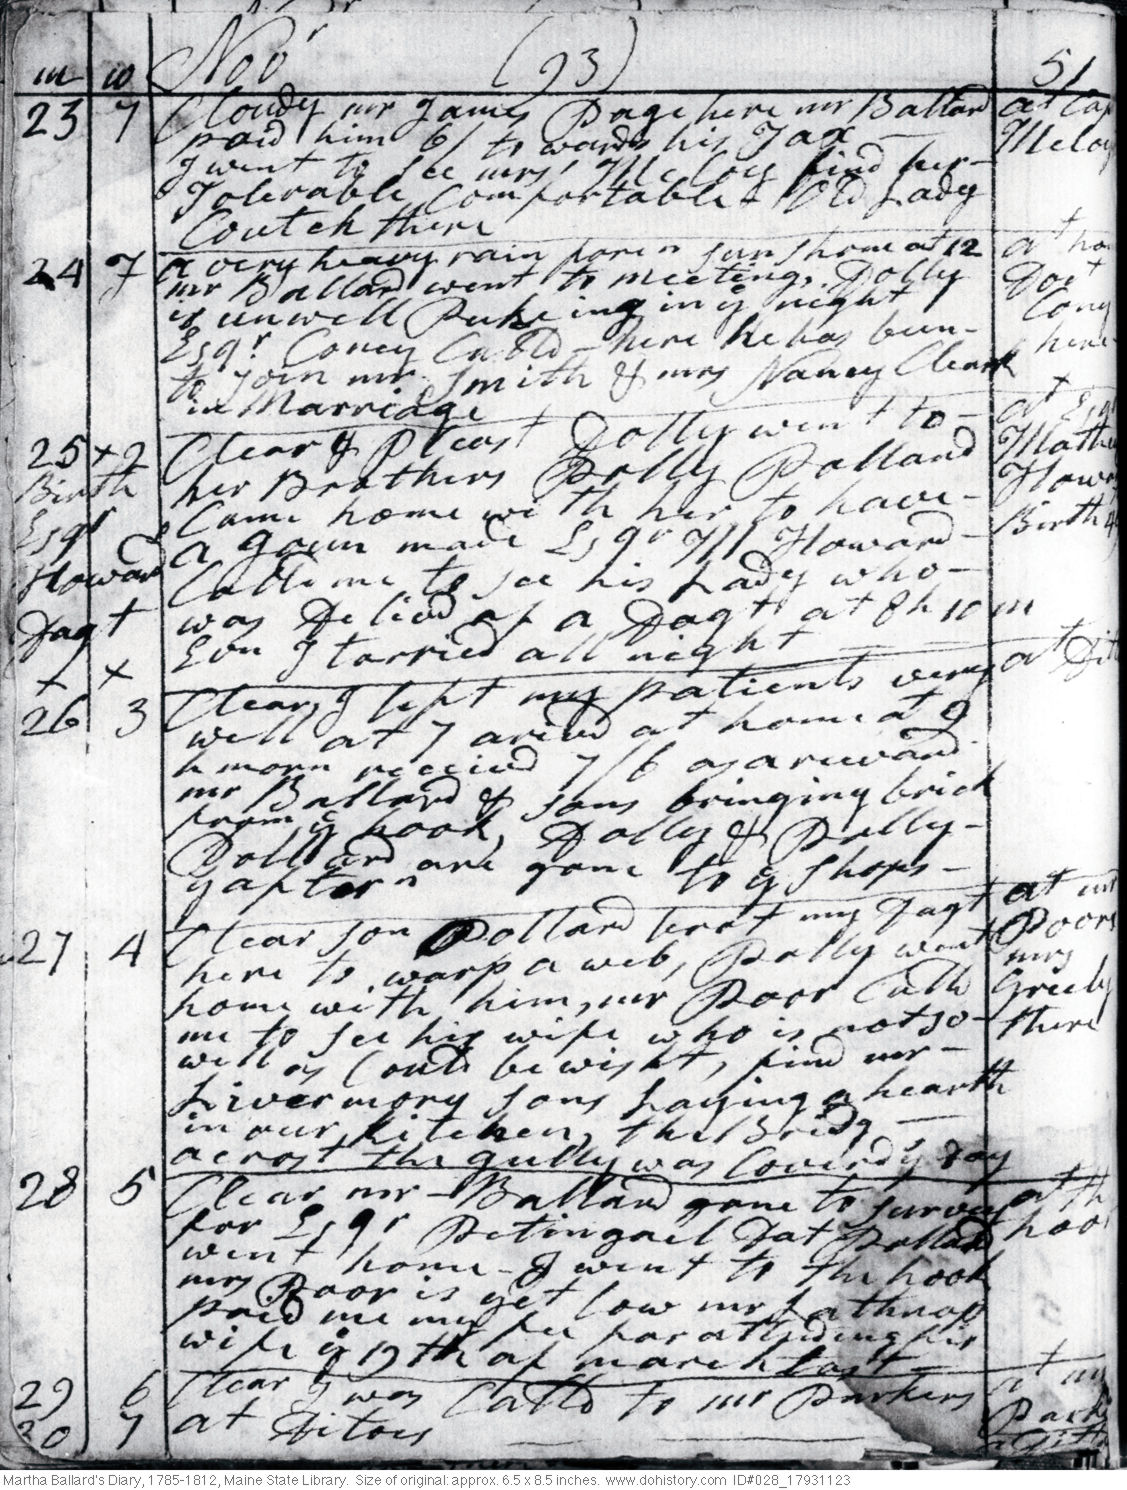 m w Novr (93) 51
23 7 Cloudy mr James Page here mr Ballard at Cap
paid him 6/ to wards his Tax Meloy
I went to see mrs Mc Loy find her
Tolerable Comfortable Old Lady
Coutch there
24 7 a very heavy rain foren sun shone at 12 at ho
mr Ballard went to meeting. Dolly Doct
is unwell Pukeing in ye night Cony
Esqr Coney Calld here he has been here
to join mr Smith & mrs Nancy Clark
in Marridge
25 x 2 Clear & Pleast Dolly went to at Esqr
Birth her Brothers Polly Pollard
Esqr Came home with her to have Howard
Howard a gown made Esqr Howard Birth
Calld me to see his Lady who
Dagt was Delivd of a Dagt at 8 h 10 m
x x Evn I tarried all night
26 3 Clear, I left my patients very at Dit
well at 7 arivd at home at 9
h morn received 7/6 as a reward
mr Ballard & sons bringing brick
from ye hook, Dolly & Polly
Pollard are gone to ye shops
y aftern
27 4 Clear son Pollard brot my Dagt at mr
here to warp a web, Polly went Poors
home with him, mr Poor Calld mrs
me to see his wife who is not so Greely
well as Could be wisht, find mr there
Livermory sons Laying a hearth
in our kitchen, the Bridg
acrost the gully was Coverd ys day
28 5 Clear mr Ballard gone to survey at th
for Esqr Petingail Dat Pollard hook
went home I went to the hook
mrs Poor is yet low mr Lathrop
paid me my fee for attending his
wife ye 17th of march last
29 6 Clear I was Calld to mr Parkers at mr
30 7 at Ditoes Park
Martha Ballard's Diary, 1785-1812, Maine State Library. Size of original: approx. 6.5 x 8.5 inches. www.dohistory.com ID#028_17931123